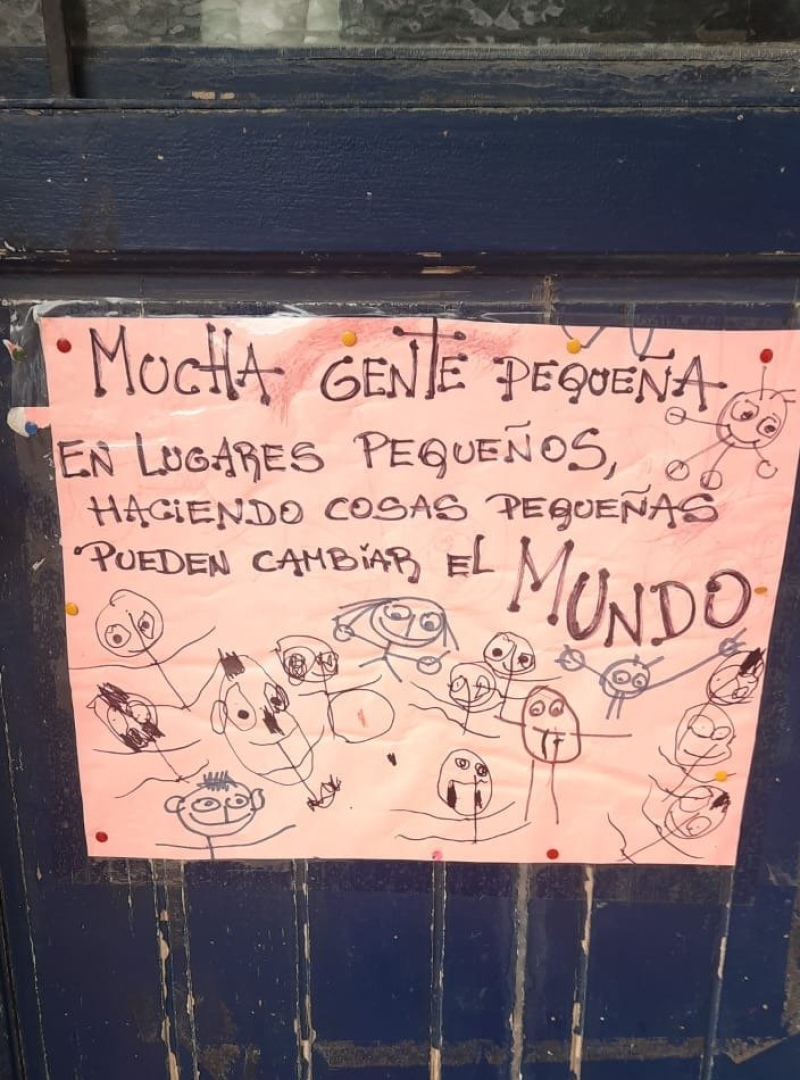 MUCHA GENTE PEQUEÑA
EN LUGARES PEQUEÑOS,
HACiENDO COSAS PEQUEÑAS
PUEDEN CAMBiAR EL MUNDO